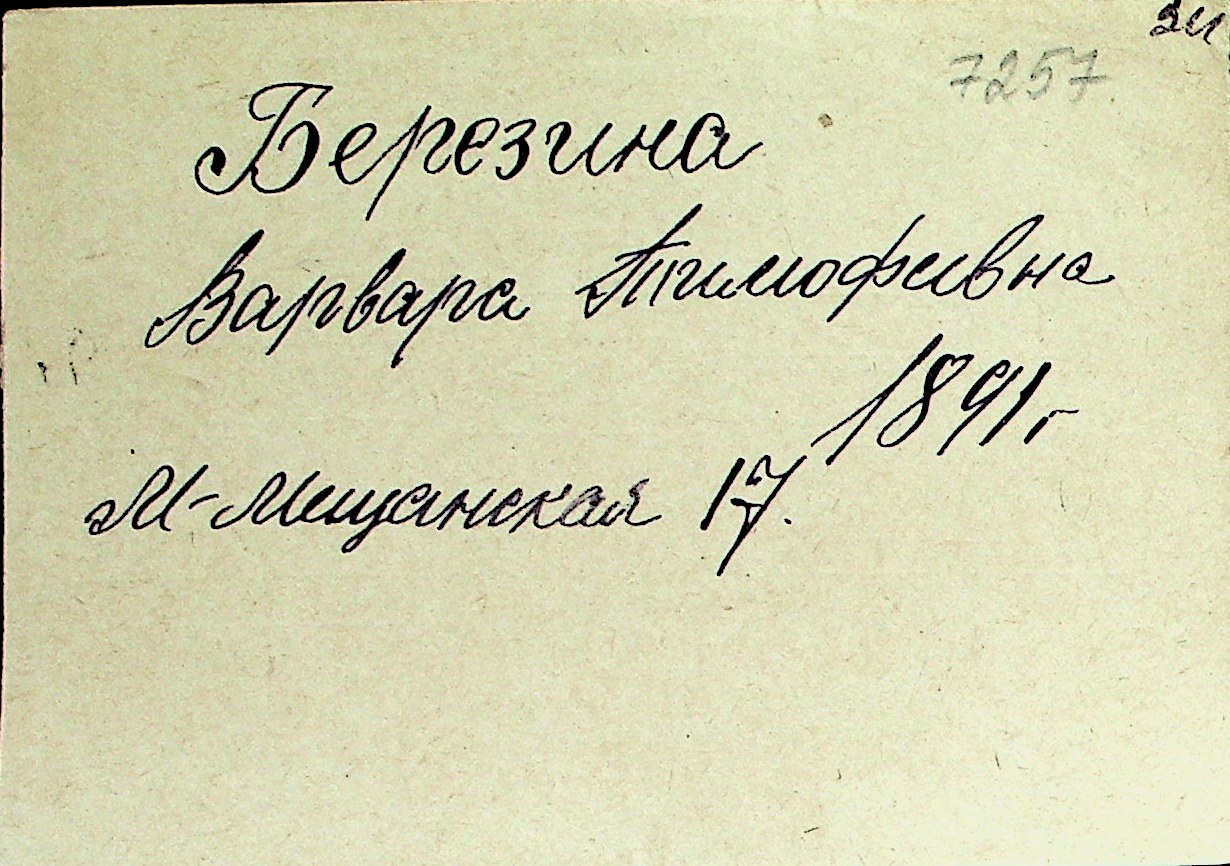 7257
Березина
Варвара Тимофеевна
1891г
М-Мещанская 17.